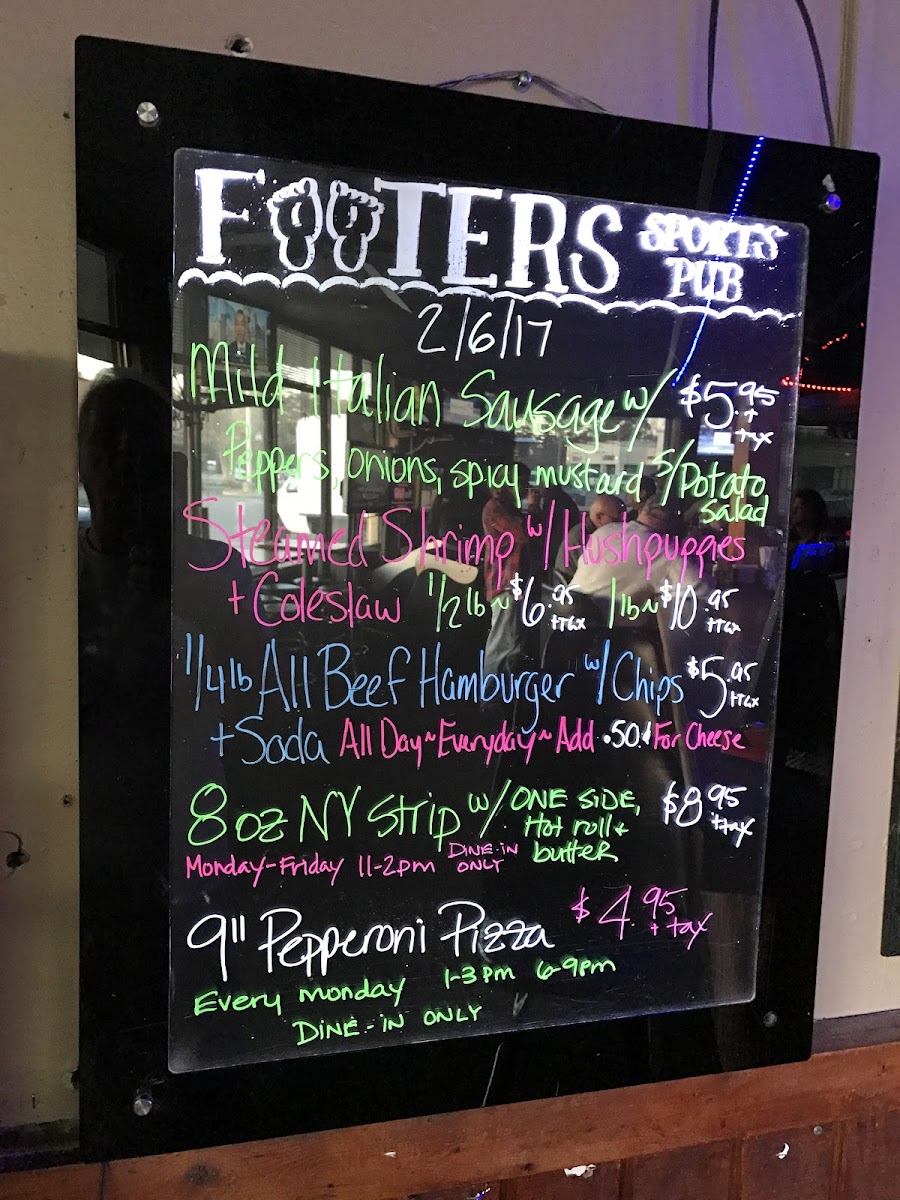 FOOTERS SPORTS PUB
2/6/17
Mild Italian Sausage w/ $5.95 + tax
Peppers, onions, spicy mustard s/Potato salad
Steamed Shrimp w/ Hushpuppies
+ Coleslaw 1/2 lb ~ $6.95 + tax 1 lb ~ $10.95 + tax
1/4 lb All Beef Hamburger w/ Chips $5.95 + tax
+ Soda All Day ~ Everyday ~ Add .50¢ For Cheese
8 oz NY Strip w/ ONE SIDE, Hot roll + butter $8.95 + tax
Monday-Friday 11-2pm DINE-IN ONLY
9" Pepperoni Pizza $4.95 + tax
Every monday 1-3pm 6-9pm
DINE-IN ONLY